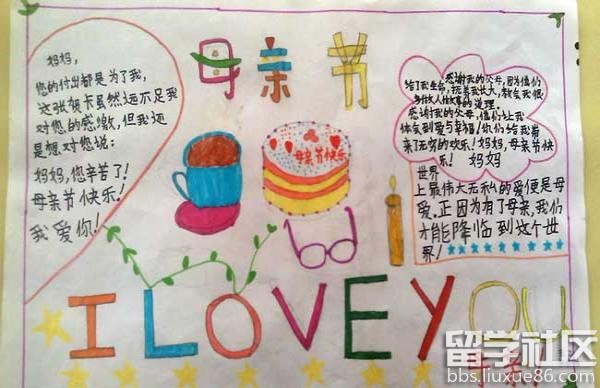 母亲节
妈妈,
您的付出都是为了我,
这张贺卡虽然还不足我
对您的感激,但我还
是想对您说:
妈妈,您辛苦了!
母亲节快乐!
我爱你!
母亲节快乐
感谢我的父母,因为他们
给了我生命,抚养我长大,教会我很
多做人做事的道理。
感谢我的父母,他们让我
体会到爱与幸福!你们给我带
来了无穷的欢乐!妈妈,母亲节快
乐! 妈妈
世界
上最伟大无私的爱便是母
爱。正因为有了母亲,我们
才能降临到这个世
界!
I LOVE YOU
留学社区
bbs.liuxue86.com